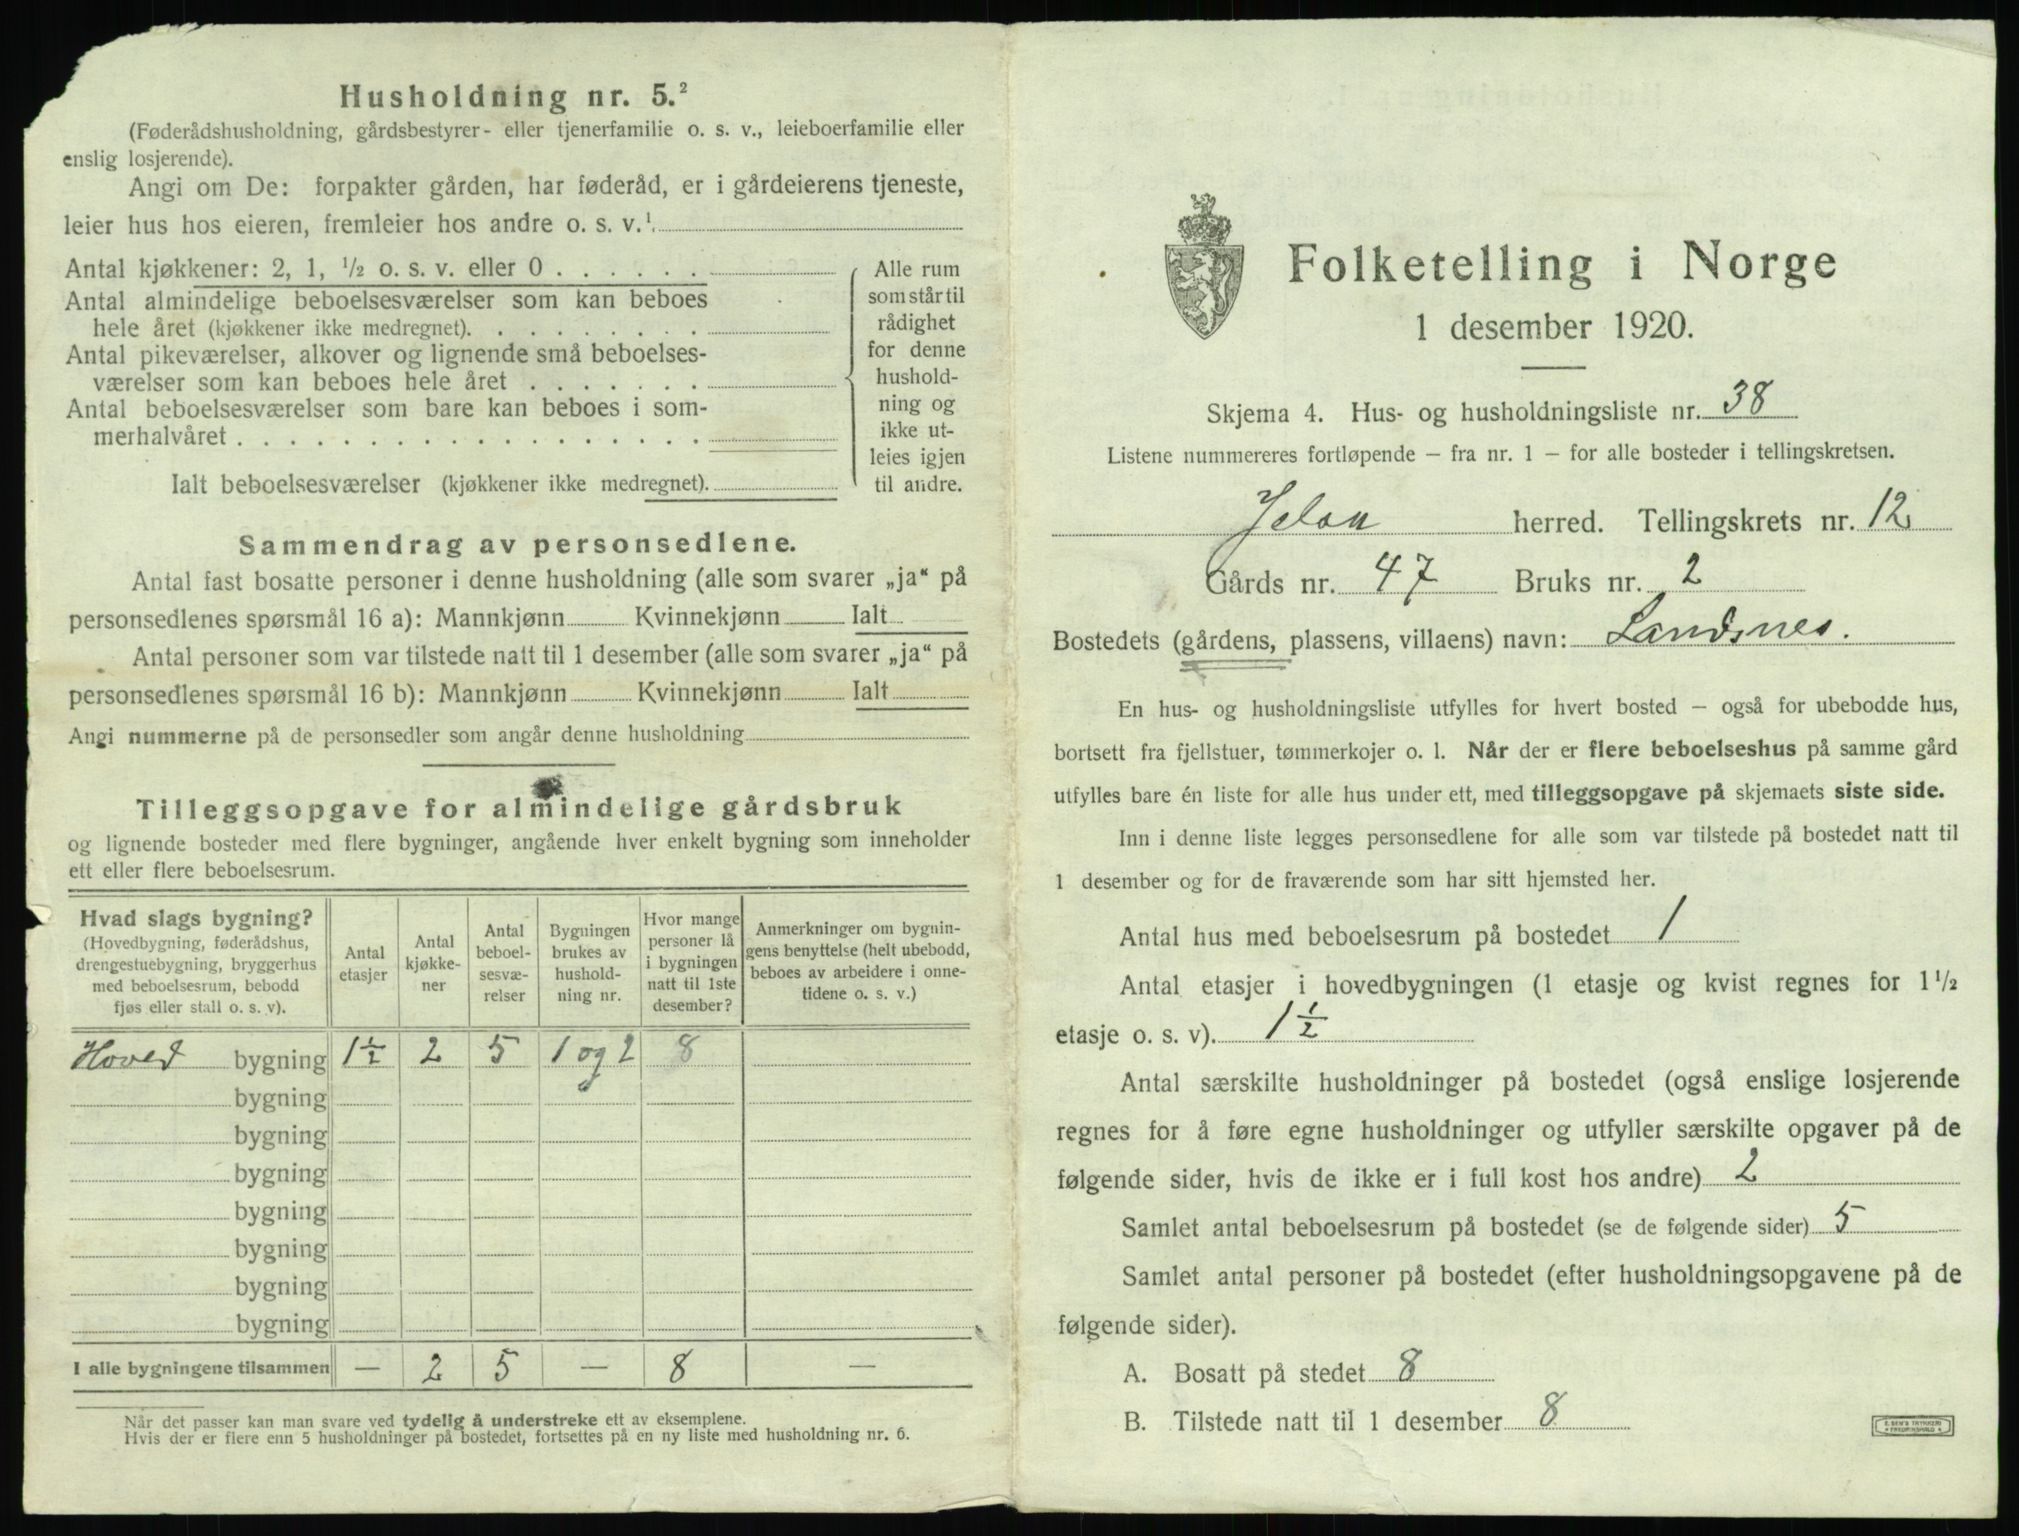 Husholdning nr. 5.²
(Føderådshusholdning, gårdsbestyrer- eller tjenerfamilie o. s. v., leieboerfamilie eller
enslig losjerende).
Angi om De: forpakter gården, har føderåd, er i gårdeierens tjeneste,
leier hus hos eieren, fremleier hos andre o. s. v.¹
Antal kjøkkener: 2, 1, ½ o. s. v. eller 0
Antal almindelige beboelsesværelser som kan beboes
hele året (kjøkkener ikke medregnet).
Antal pikeværelser, alkover og lignende små beboelses-
værelser som kan beboes hele året
Antal beboelsesværelser som bare kan beboes i som-
merhalvåret
Ialt beboelsesværelser (kjøkkener ikke medregnet).
Alle rum
som står til
rådighet
for denne
hushold-
ning og
ikke ut-
leies igjen
til andre.
Sammendrag av personsedlene.
Antal fast bosatte personer i denne husholdning (alle som svarer „ja“ på
personsedlenes spørsmål 16 a): Mannkjønn Kvinnekjønn Ialt
Antal personer som var tilstede natt til 1 desember (alle som svarer „ja“ på
personsedlenes spørsmål 16 b): Mannkjønn Kvinnekjønn Ialt
Angi nummerne på de personsedler som angår denne husholdning
Tilleggsopgave for almindelige gårdsbruk
og lignende bosteder med flere bygninger, angående hver enkelt bygning som inneholder
ett eller flere beboelsesrum.
Hvad slags bygning?
(Hovedbygning, føderådshus,
drengestuebygning, bryggerhus
med beboelsesrum, bebodd
fjøs eller stall o. s. v).
Antal
etasjer
Antal
kjøkke-
ner
Antal
beboel-
sesvæ-
relser
Bygningen
brukes av
hushold-
ning nr.
Hvor mange
personer lå
i bygningen
natt til 1ste
desember?
Anmerkninger om bygnin-
gens benyttelse (helt ubebodd,
beboes av arbeidere i onne-
tidene o. s. v.)
Hoved bygning 1½ 2 5 1 og 2 8
bygning
bygning
bygning
bygning
bygning
bygning
bygning
I alle bygningene tilsammen — 2 5 — 8 —
Når det passer kan man svare ved tydelig å understreke ett av eksemplene.
Hvis der er flere enn 5 husholdninger på bostedet, fortsettes på en ny liste med husholdning nr. 6.
Folketelling i Norge
1 desember 1920.
Skjema 4. Hus- og husholdningsliste nr. 38
Listene nummereres fortløpende — fra nr. 1 — for alle bosteder i tellingskretsen.
herred. Tellingskrets nr. 12
Gårds nr. 47 Bruks nr. 2
Bostedets (gårdens, plassens, villaens) navn: Landsnes.
En hus- og husholdningsliste utfylles for hvert bosted — også for ubebodde hus,
bortsett fra fjellstuer, tømmerkojer o. l. Når der er flere beboelseshus på samme gård
utfylles bare én liste for alle hus under ett, med tilleggsopgave på skjemaets siste side.
Inn i denne liste legges personsedlene for alle som var tilstede på bostedet natt til
1 desember og for de fraværende som har sitt hjemsted her.
Antal hus med beboelsesrum på bostedet 1
Antal etasjer i hovedbygningen (1 etasje og kvist regnes for 1½
etasje o. s. v). 1½
Antal særskilte husholdninger på bostedet (også enslige losjerende
regnes for å føre egne husholdninger og utfyller særskilte opgaver på de
følgende sider, hvis de ikke er i full kost hos andre) 2
Samlet antal beboelsesrum på bostedet (se de følgende sider) 5
Samlet antal personer på bostedet (efter husholdningsopgavene på de
følgende sider).
A. Bosatt på stedet 8
B. Tilstede natt til 1 desember 8